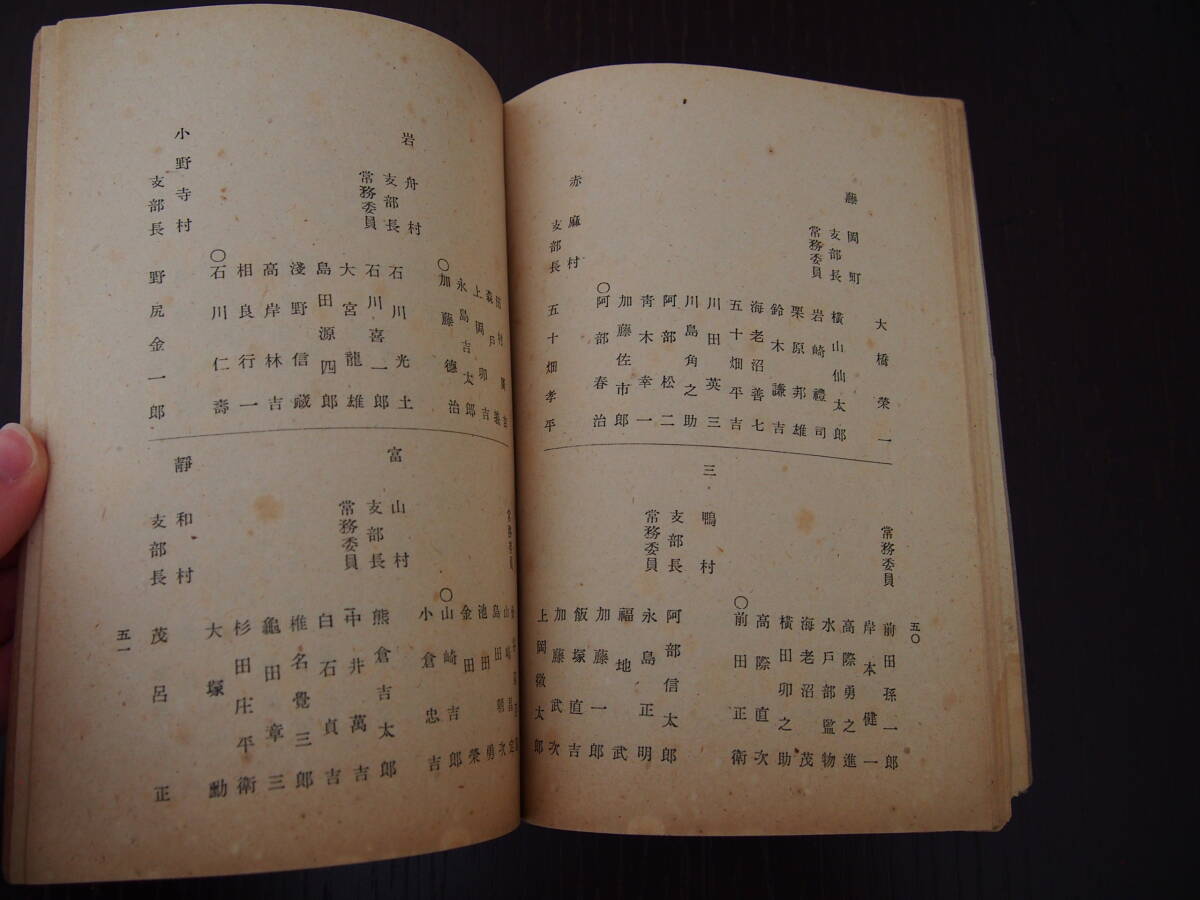 大橋榮一
藤岡町
支部長 橫山仙太郎
常務委員 岩崎禮司
栗原邦雄
鈴木謙吉
海老沼善七
五十畑平吉
川田英三
川島角之助
阿部松二
靑木幸一
加藤佐市郎
○阿部春治
赤麻村
支部長 五十畑孝平
常務委員 前田孫一郎
岸本健一
高際勇之進
水戸部監物
海老沼茂
橫田卯之助
高際直次
○前田正衛
三鴨村
支部長 阿部信太郎
常務委員 永島正明
福地武
加藤一郎
飯塚直吉
加藤武次
上岡徵太郎
五〇
森戸
上岡卯吉
永島吉太郎
○加藤德治
岩舟村
支部長 石川光士
常務委員 石川喜一郎
大宮龍雄
島田源四郎
淺野信藏
高岸林吉
相良行一
○石川仁壽
小野寺村
支部長 野尻金一郎
常務委員
島田
池田勇
金田榮
○山崎吉郎
小倉忠吉
富山村
支部長 熊倉吉太郎
常務委員 中井萬吉
白石貞吉
椎名覺三郎
龜田章三
杉田庄平衛
大塚勳
靜和村
支部長 茂呂正
五一